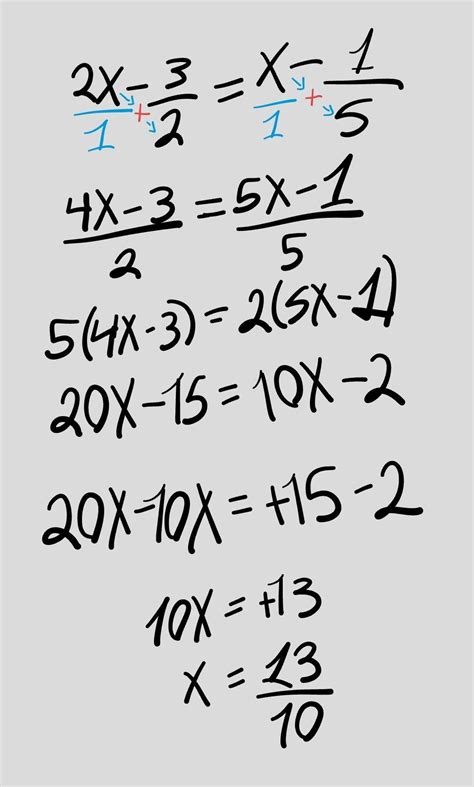 2x/1 - 3/2 = x/1 - 1/5
+ +
4x-3/2 = 5x-1/5
5(4x-3) = 2(5x-1)
20x-15 = 10x-2
20x-10x = +15-2
10x = +13
x = 13/10